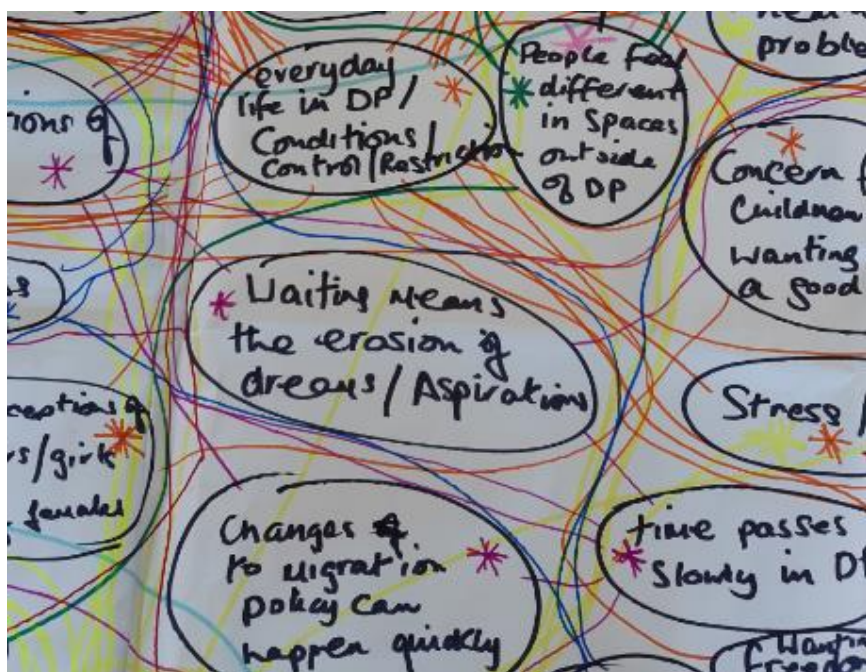 everyday
life in DP/
Conditions/
Control/Restriction
People feel
different
in spaces
outside
of DP
proble
ions of
Concern f
Children
wanting
a good
Waiting means
the erosion of
dreams/Aspirations
ceptions of
rs/girls
females
Stress/
Changes
to migration
policy can
happen quickly
time passes
slowly in DP
Wanting